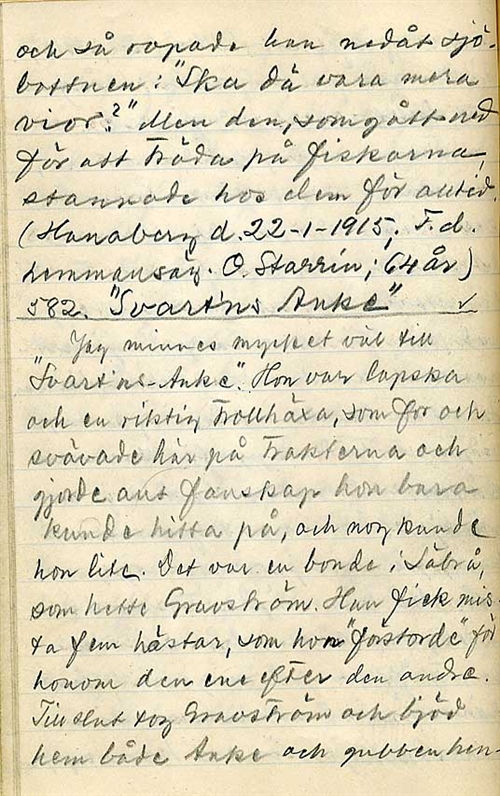 och så ropade han nedåt sjö-
bottnen: "Ska dä vara mera
vior?" Men den, som gått ned
för att träda på fiskarna,
stannade hos dem för alltid.
(Hanaberg d. 22-1-1915; F.d.
hemmansäg. O. Starrin; 64 år)
582. "Svart'ns Anke" ✓
Jag minnes mycket väl till
"Svart'ns-Anke". Hon var lapska
och en riktig trollhäxa, som for och
svävade här på trakterna och
gjorde allt fanskap hon bara
kunde hitta på, och nog kunde
hon lite. Det var en bonde i Säbrå,
som hette Gravström. Han fick mis-
ta fem hästar, som hon "förstorde" för
honom den ene efter den andre.
Till slut tog Gravström och bjöd
hem både Anke och gubben hen-